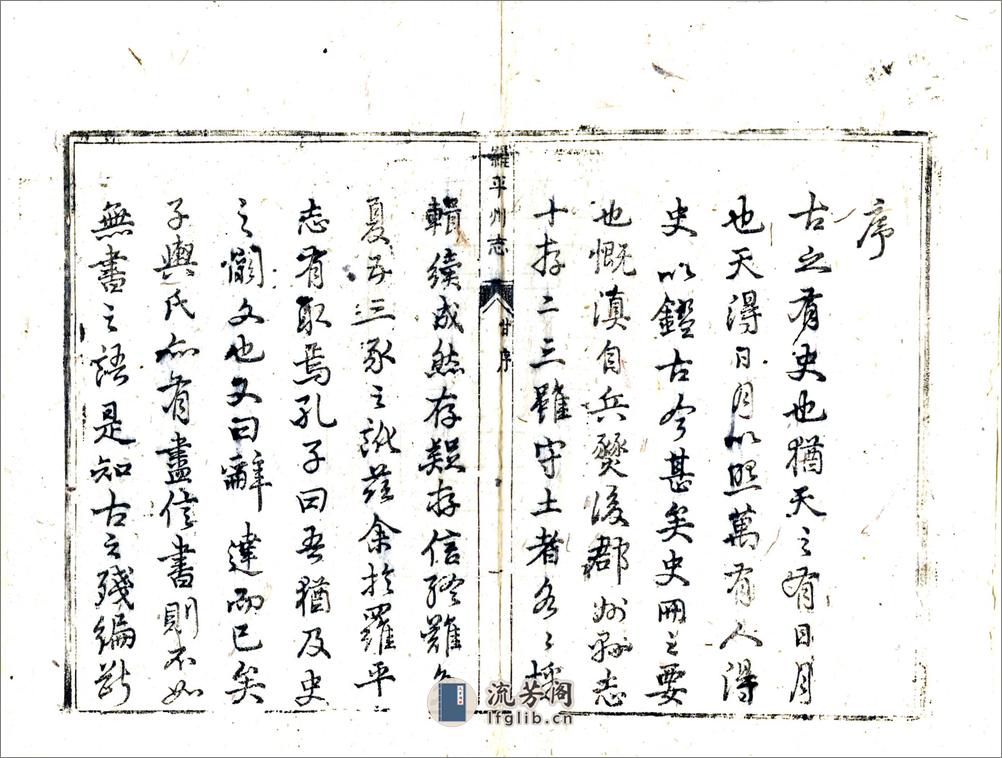 序
古之有史也猶天之有日月
也天得日月以照萬有人得
史以鑑古今甚矣史冊之要
也慨滇自兵燹後郡州縣志
十存二三雖守土者各々採
羅平州志 甘序 一
輯續成然存疑存信終難免
夏五三豕之訛茲余於羅平
志有取焉孔子曰吾猶及史
之闕文也又曰辭達而已矣
子輿氏亦有盡信書則不如
無書之語是知古之殘編斷
流芳阁
lfglib.cn